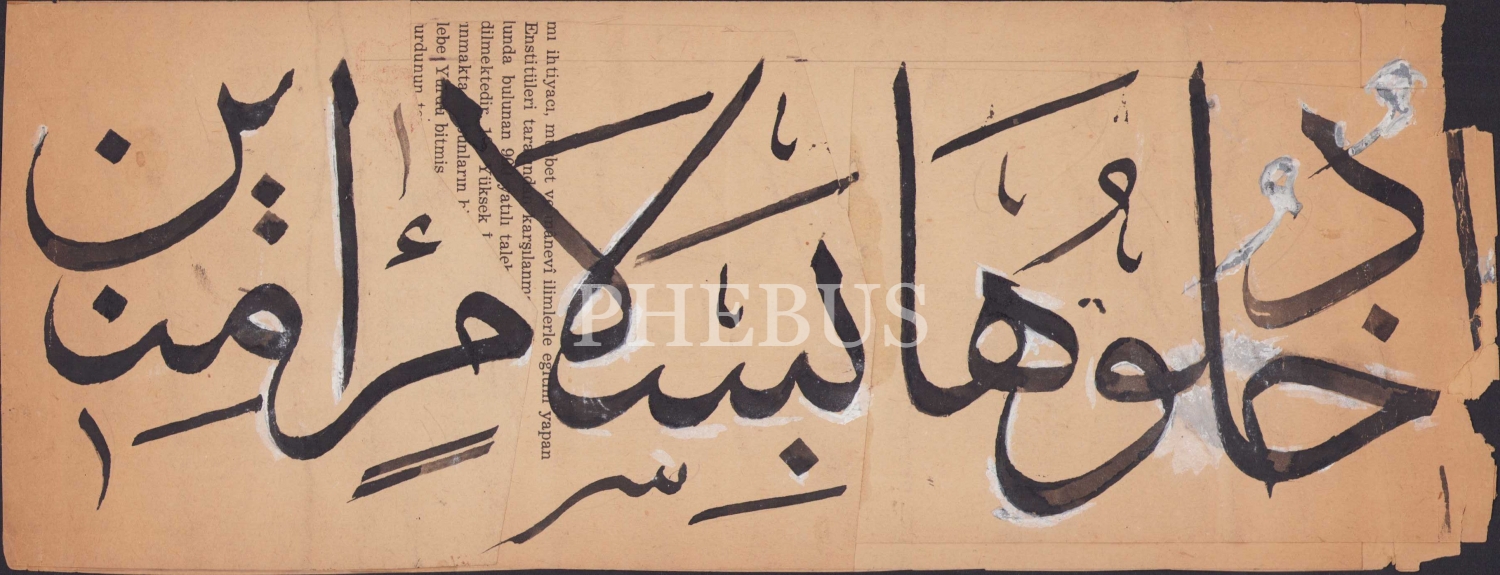 اُدْخُلُوهَا بِسَلَامٍ اٰمِنِينَ
mı ihtiyacı, müsbet ve manevî ilimlerle eğitim yapan
Enstitüleri karşılanm
lunda bulunan 90 yatılı
dilmektedir. Yüksek
ınmakta unların
lebe Yurdu bitmis
urdunun
PHEBUS